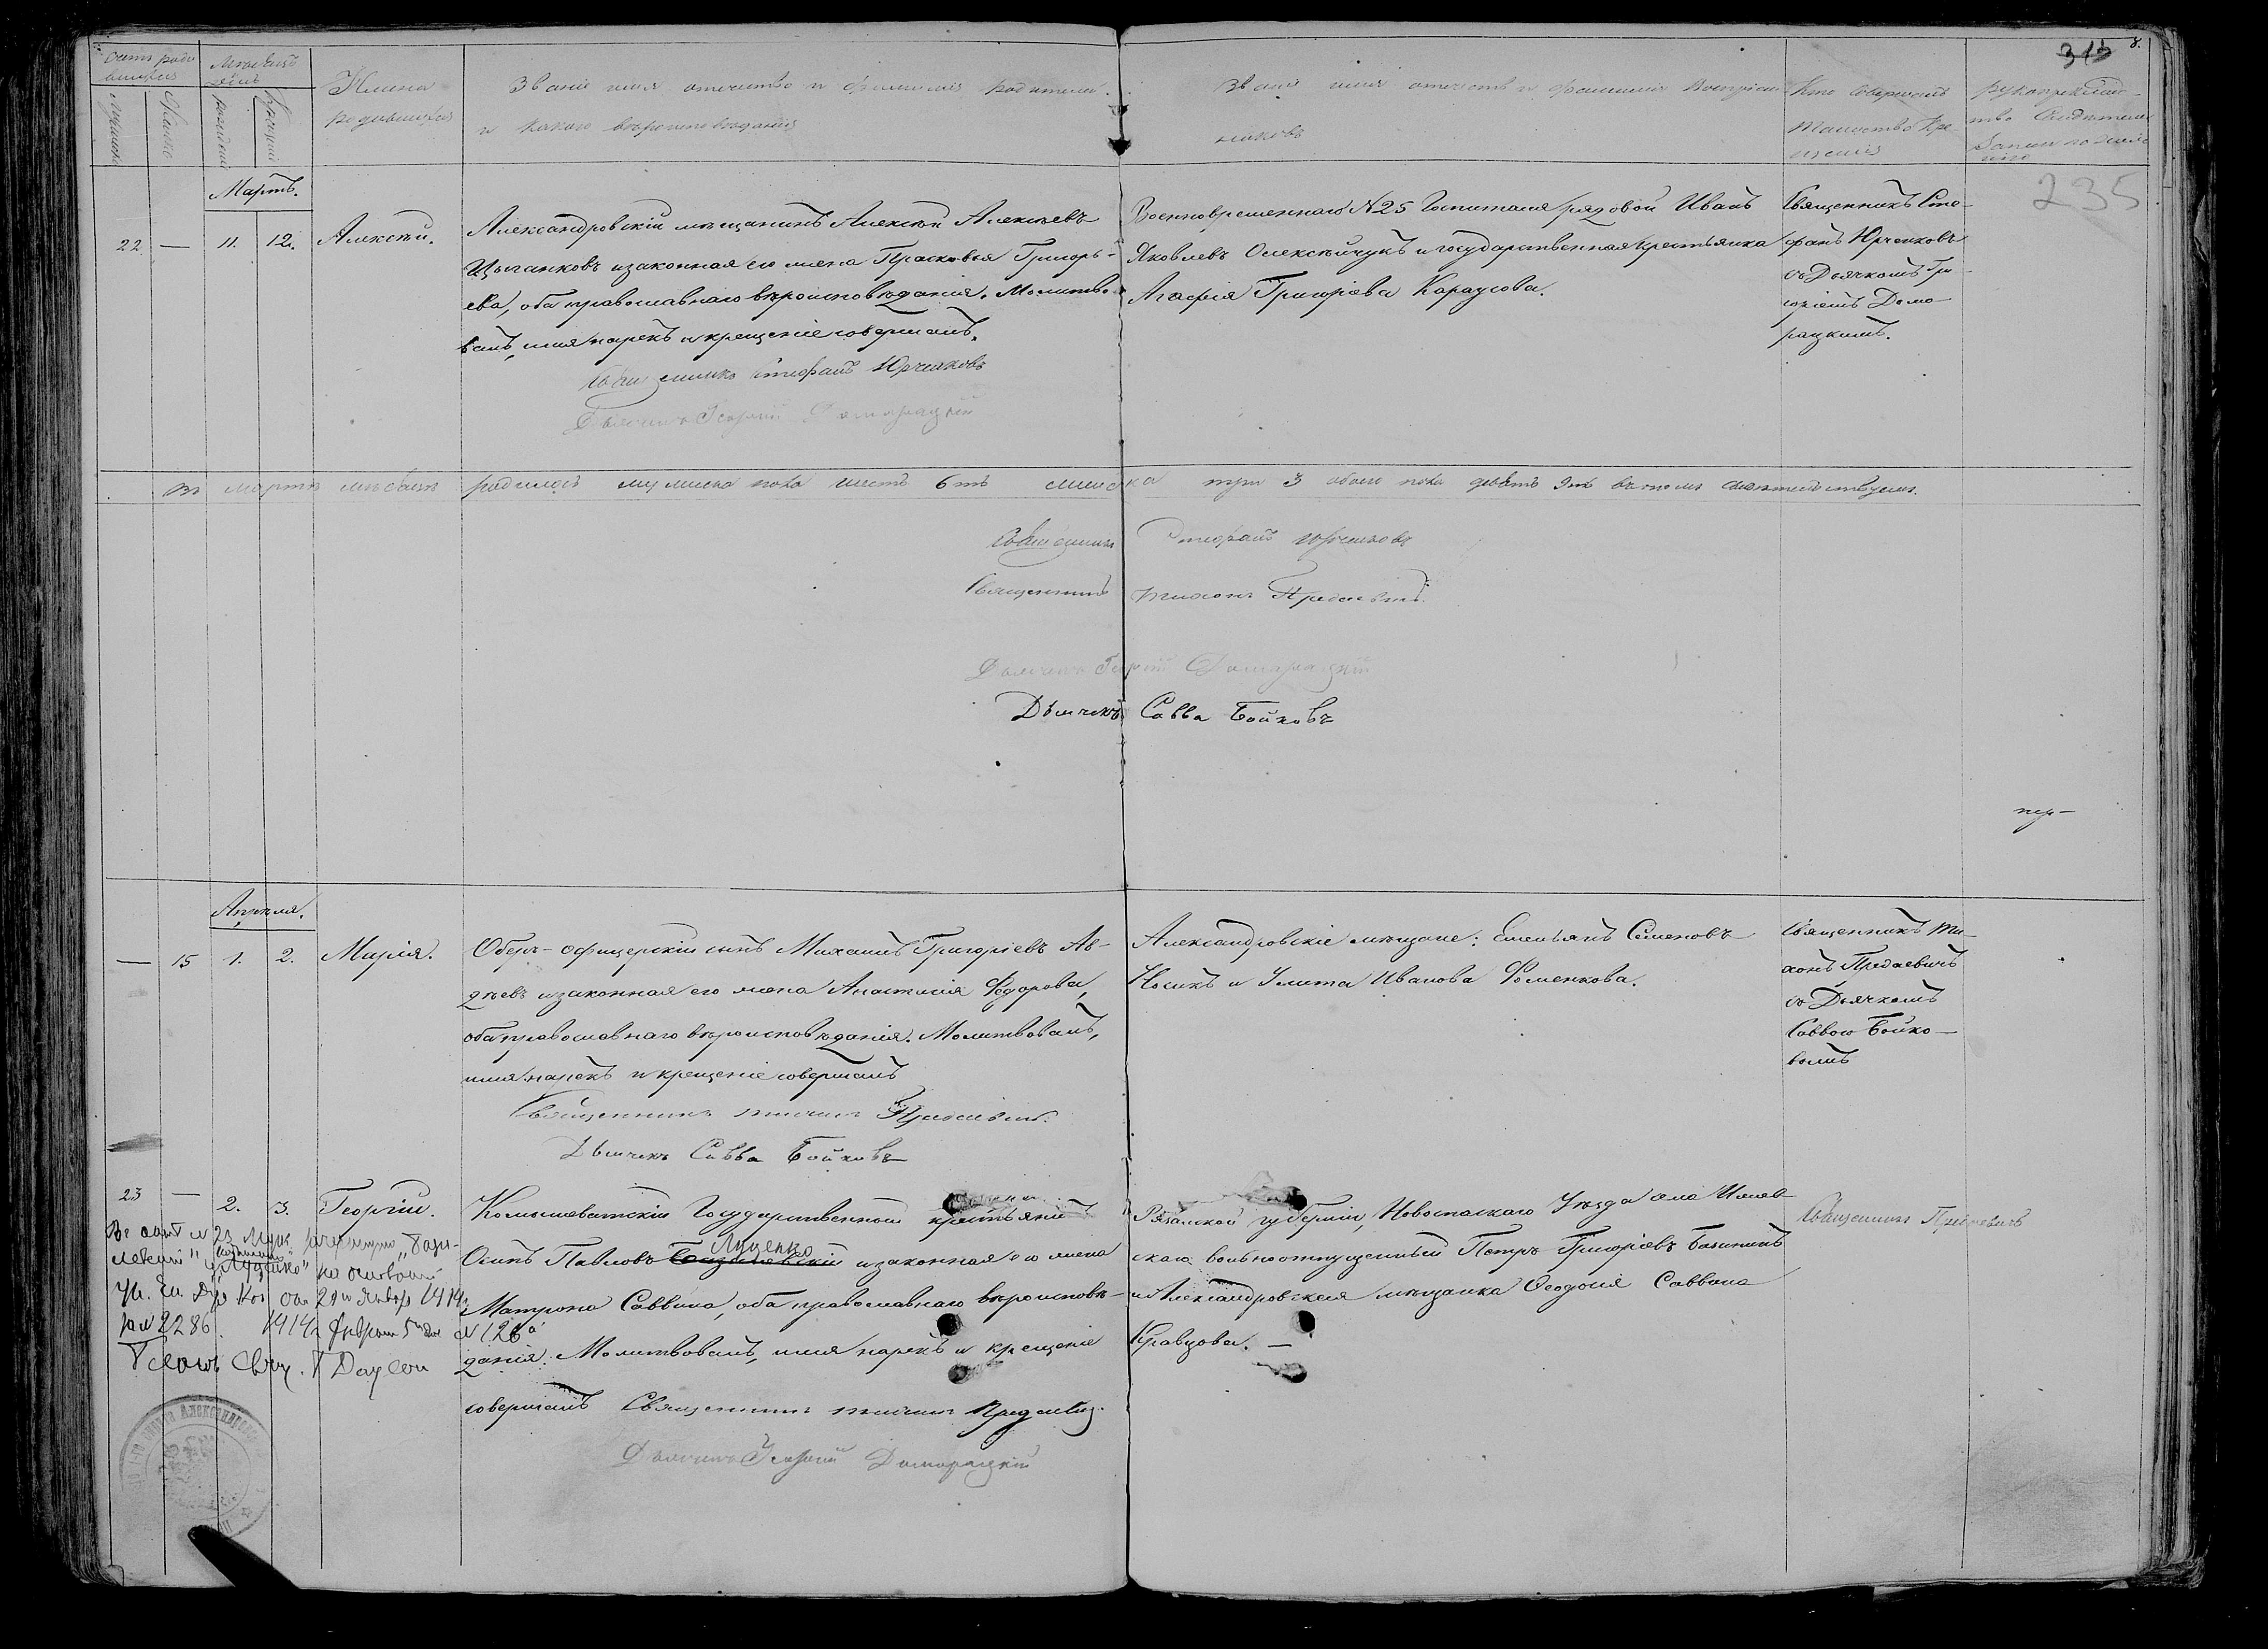 313
8.
235
Счетъ роди
вшихся
Мѣсяцъ
день
Мужеска
Женска
рожденія
крещенія
Имена
родившихся
Званіе имя отчество и фамилія родителей
и какого вѣроисповѣданія
Званіе имя отчество и фамилія Воспріем
никовъ
Кто совершалъ
таинство Кре
щенія
рукоприклад
ство Свидѣтелей
записи по жела
нію
Мартъ.
22 — 11. 12. Алексѣй.
Александровскій мѣщанинъ Алексѣй Алексѣевъ
Цыганковъ и законная его жена Прасковья Григорь-
ева, оба православнаго вѣроисповѣданія. Молитво-
валъ, имя нарекъ и крещеніе совершалъ.
Священникъ Стефанъ Юрченковъ
Дьячекъ Георгій Доморацкій
Военновременнаго №25 Госпиталя рядовой Иванъ
Яковлевъ Олексѣйчукъ и государственная крестьянка
Агафія Григорьева Караулова.
Священникъ Сте-
фанъ Юрченковъ
съ Дьячкомъ Ге
оргіемъ Домо-
рацкимъ.
въ мартѣ мѣсяцѣ родилось мужеска пола шесть 6ть женска три 3 обоего пола девять 9ть въ томъ свидѣтельствуемъ.
Священникъ Стефанъ Юрченковъ
Священникъ Тихонъ Предаевичъ
Дьячекъ Георгій Доморацкій
Дьячекъ Савва Бойковъ
пер-
Апрѣля.
— 15 1. 2. Марія.
Оберъ-офицерскій сынъ Михаилъ Григорьевъ Ав-
дѣевъ и законная его жена Анастасія Федорова,
оба православнаго вѣроисповѣданія. Молитвовалъ,
имя нарекъ и крещеніе совершалъ
Священникъ Тихонъ Предаевичъ.
Дьячекъ Савва Бойковъ
Александровскіе мѣщане: Емельянъ Семеновъ
Носикъ и Улита Иванова Фоменкова.
Священникъ Ти-
хонъ Предаевичъ
съ Дьячкомъ
Саввою Бойко-
вымъ
23 — 2. 3. Георгій.
Комышеватскій Государственный крестьянинъ
Осипъ Павловъ Луценко и законная его жена
Матрона Саввина, оба православнаго вѣроисповѣ-
данія. Молитвовалъ, имя нарекъ и крещеніе
совершалъ Священникъ Тихонъ Предаевичъ.
Дьячекъ Георгій Доморацкій
Рязанской губерніи, Новоспаскаго Уѣзда села
вольноотпущенный Петръ Григорьевъ
и Александровская мѣщанка Ѳеодосія Саввина
Кравцова. —
Священникъ Предаевичъ
Въ актѣ № 23
"Луценко" на основаніи
21 Января 1914
за № 2286. 1914 г. Февраля 5 дня № 126
Александровс